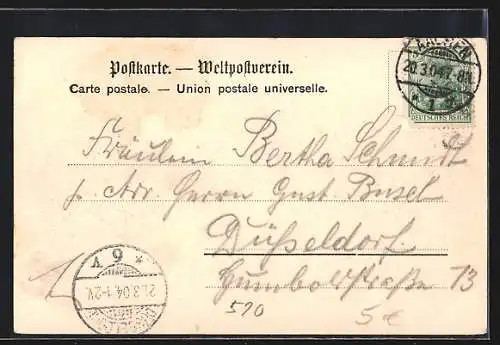 Postkarte. — Weltpostverein.
Carte postale. — Union postale universelle.
AACHEN
20.3.04.7-8N.
* 1 *
DEUTSCHES REICH
Fräulein Bertha Schmidt
p. Adr. Herrn Gust. Busel
Düsseldorf.
Humboldtstraße 13
* 6 V
21.3.04.1-2V.
570
5€